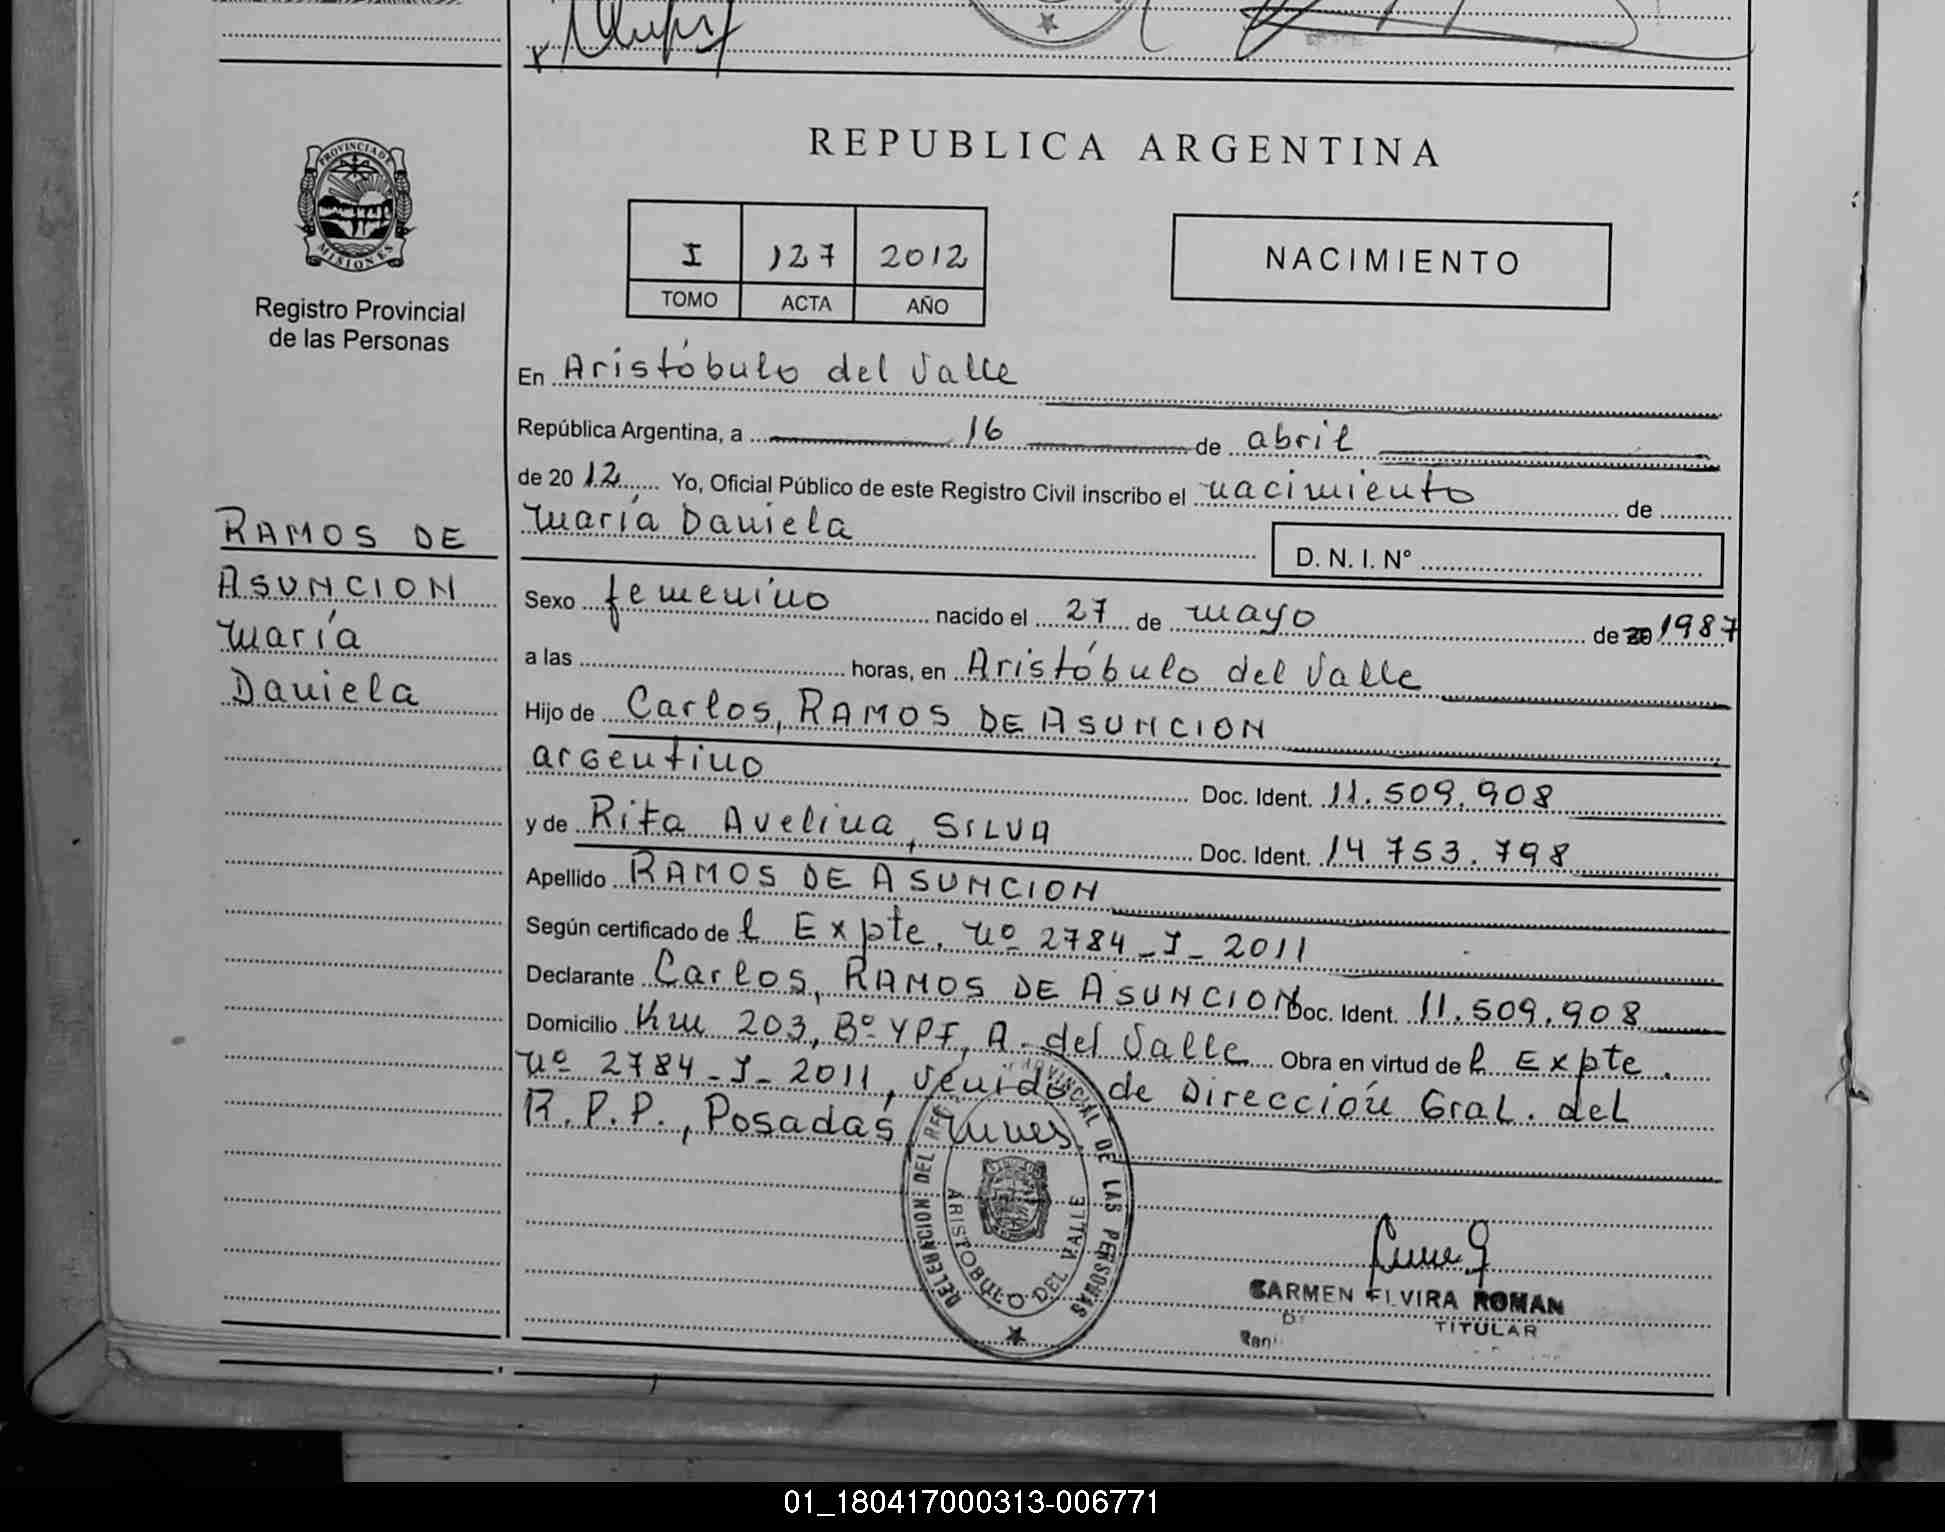 REPUBLICA ARGENTINA
PROVINCIA DE
MISIONES
Registro Provincial
de las Personas
I 127 2012
TOMO ACTA AÑO
NACIMIENTO
En Aristóbulo del Valle
República Argentina, a 16 de abril
de 20 12 Yo, Oficial Público de este Registro Civil inscribo el nacimiento de
María Daniela
D. N. I. N°
RAMOS DE
ASUNCION
María
Daniela
Sexo femenino nacido el 27 de mayo de 20 1987
a las horas, en Aristóbulo del Valle
Hijo de Carlos, RAMOS DE ASUNCION
argentino Doc. Ident. 11.509.908
y de Rita Avelina, SILVA Doc. Ident. 14.753.798
Apellido RAMOS DE ASUNCION
Según certificado de l Expte. Nº 2784-I-2011
Declarante Carlos, RAMOS DE ASUNCION Doc. Ident. 11.509.908
Domicilio Km 203, Bº YPF, A. del Valle Obra en virtud de l Expte.
Nº 2784-I-2011, venido de Dirección Gral. del
R.P.P., Posadas, Mnes.
DELEGACION DEL REG. PROVINCIAL DE LAS PERSONAS
ARISTOBULO DEL VALLE
CARMEN ELVIRA ROMAN
TITULAR
01_180417000313-006771